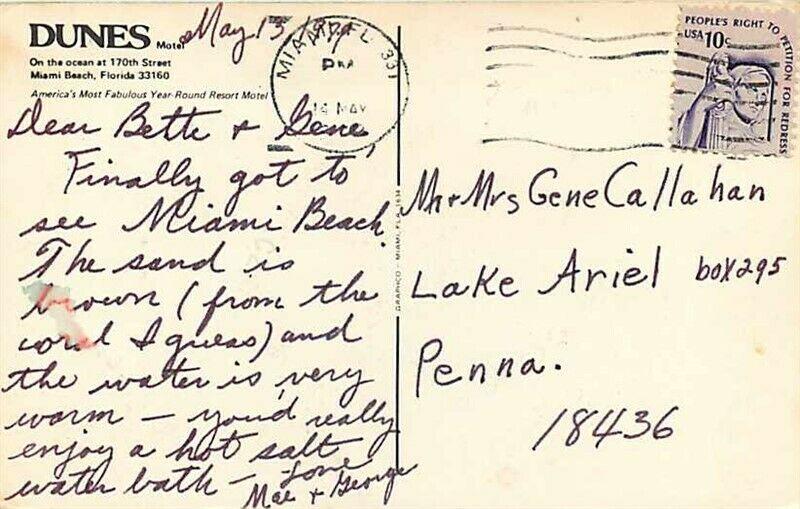 DUNES Motel
On the ocean at 170th Street
Miami Beach, Florida 33160
America's Most Fabulous Year-Round Resort Motel
May 13, 1979
MIAMI, FL 331
PM
14 MAY
PEOPLE'S RIGHT TO PETITION FOR REDRESS
USA 10c
Dear Bette + Gene,
Finally got to
see Miami Beach.
The sand is
brown (from the
coral I guess) and
the water is very
warm – you'd really
enjoy a hot salt
water bath –
Love
Mae + George
GRAPHICO - MIAMI, FLA.
Mr + Mrs Gene Callahan
Lake Ariel box 295
Penna.
18436